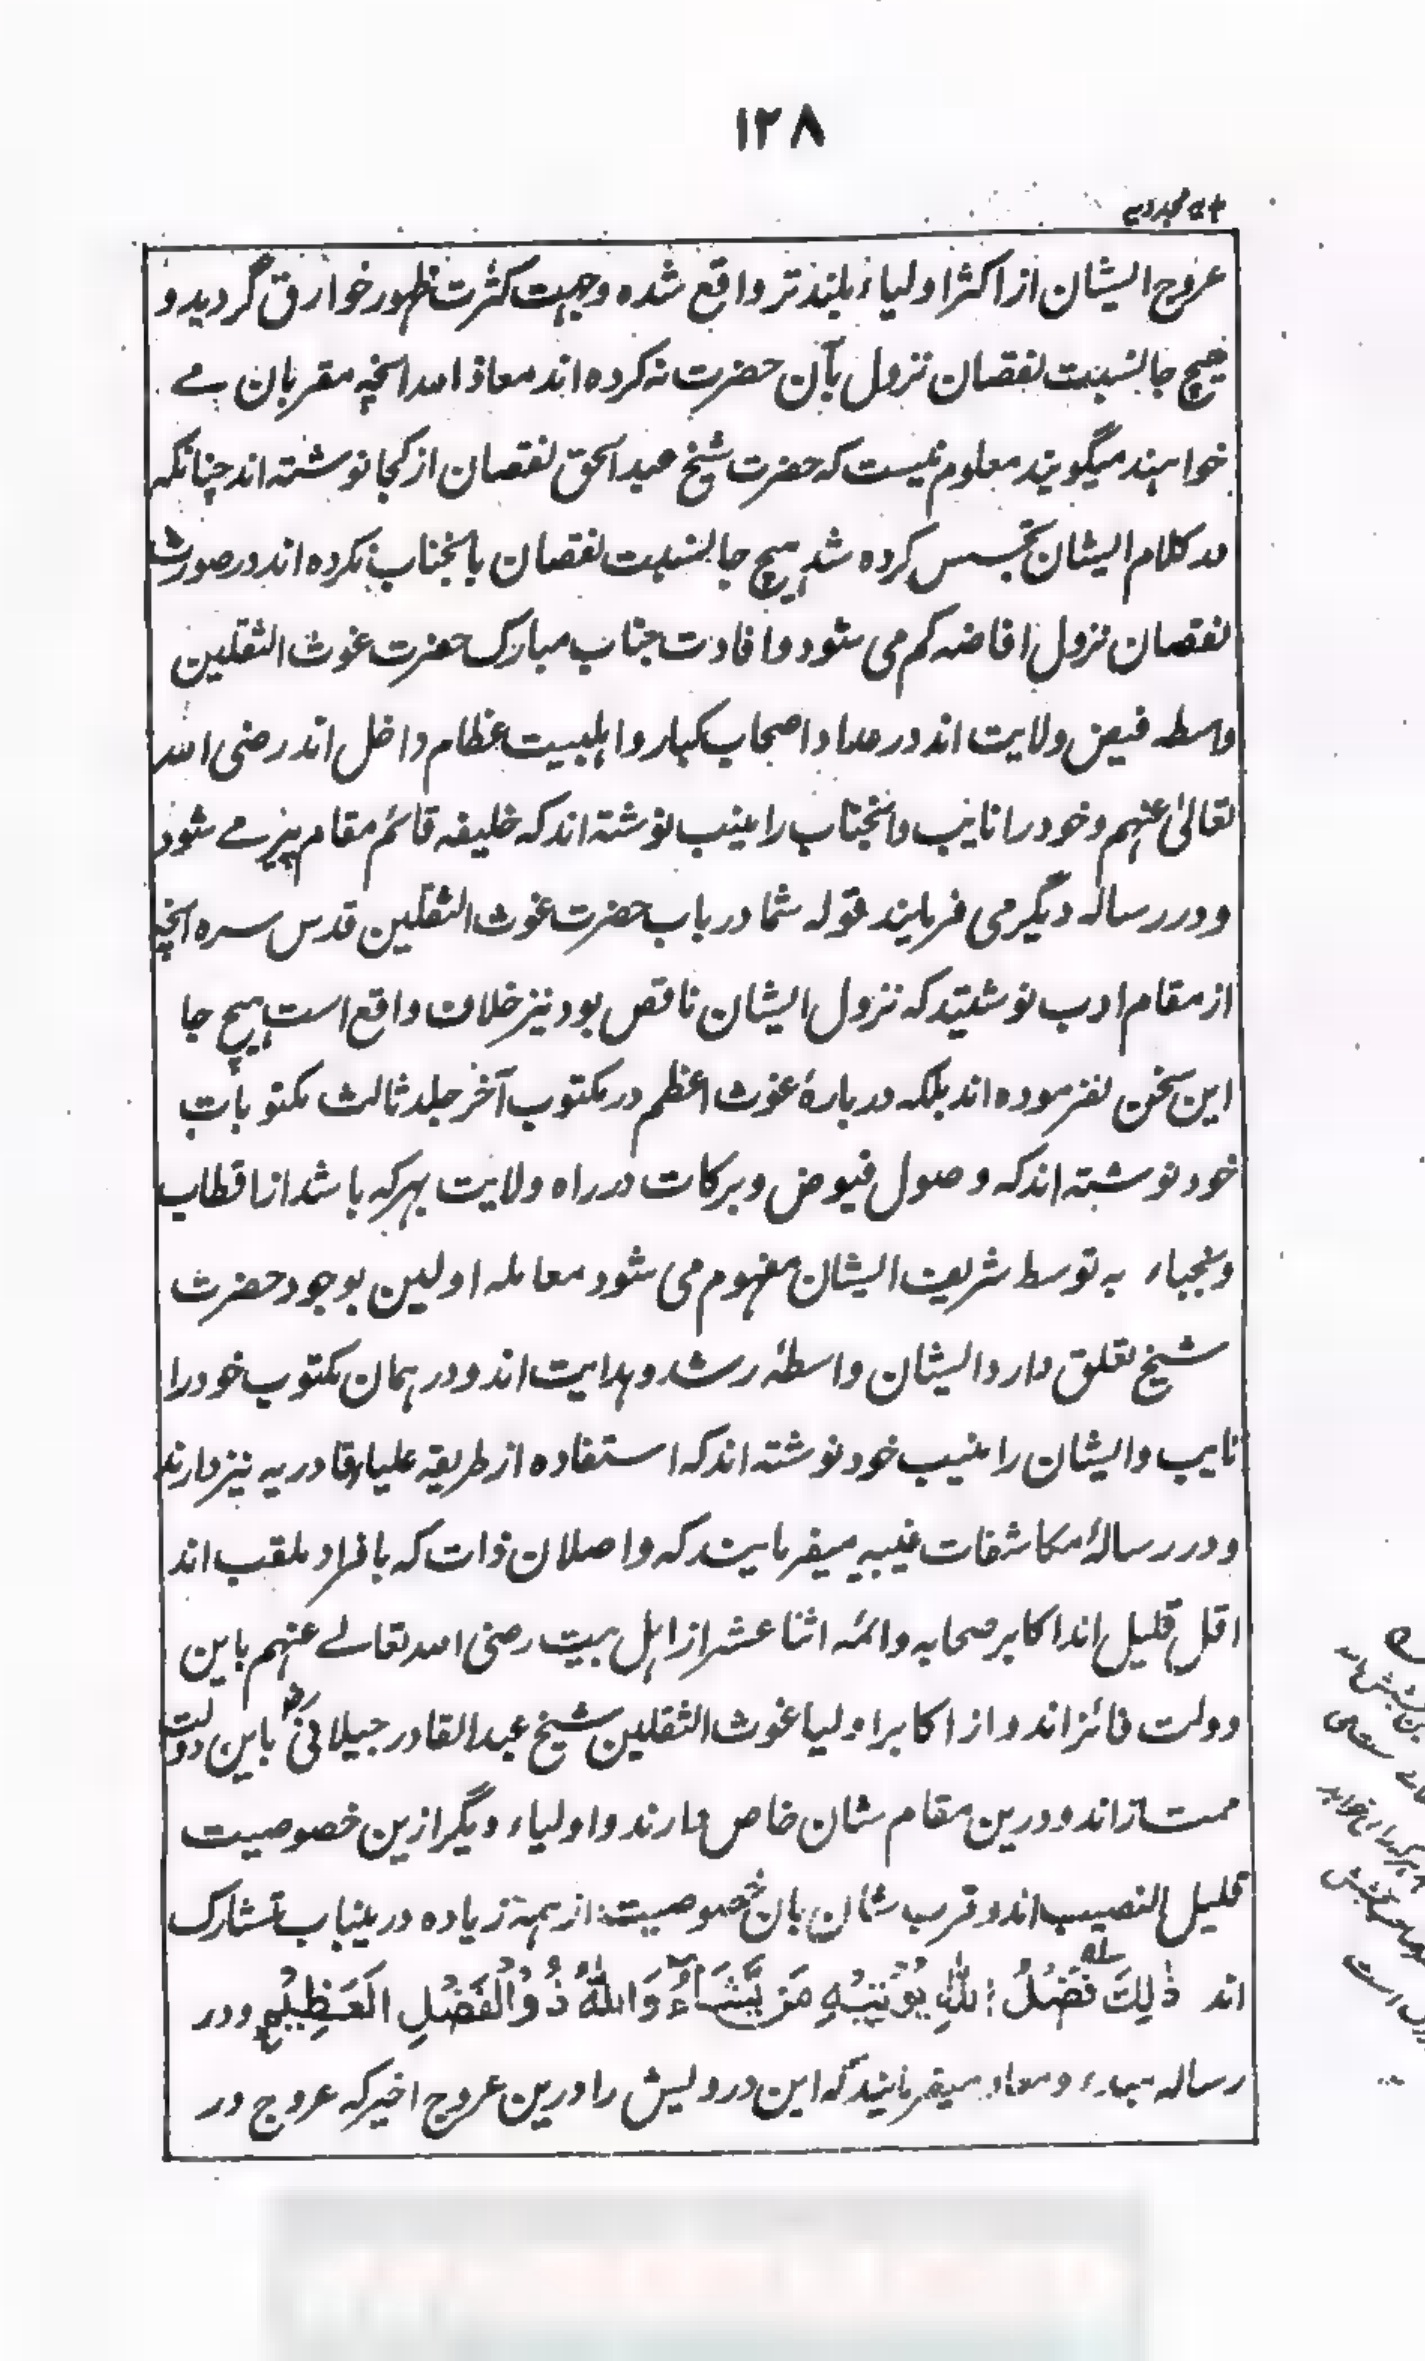 ۱۲۸
عروج ایشان از اکثر اولیاء بلند تر واقع شده وجهت کثرت ظهور خوارق گردید و
هیچ جا نسبت نقصان نزول بآن حضرت نه کرده اند معاذ الله انچه مقربان بے
خواهند میگویند معلوم نیست که حضرت شیخ عبد الحق نقصان از کجا نوشته اند چنانکه
در کلام ایشان تجسس کرده شد هیچ جا نسبت نقصان بانجناب نکرده اند در صورت
نقصان نزول افاضه کم می شود و افادت جناب مبارک حضرت غوث الثقلین
واسطه فیض ولایت اند در مداد اصحاب کبار و اهلبیت عظام داخل اند رضی الله
تعالیٰ عنهم و خود را نایب و انجناب را منیب نوشته اند که خلیفه قائم مقام پیر مے شود
و در رساله دیگر می فرمایند قوله شما در باب حضرت غوث الثقلین قدس سره انچه
از مقام ادب نوشتید که نزول ایشان ناقص بود نیز خلاف واقع است هیچ جا
این سخن نفرموده اند بلکه در بارهٔ غوث اعظم در مکتوب آخر جلد ثالث مکتوبات
خود نوشته اند که وصول فیوض و برکات در راه ولایت بهر که باشد از اقطاب
و نجباء به توسط شریف ایشان مفهوم می شود معامله اولین بوجود حضرت
شیخ تعلق دارد ایشان واسطهٔ رشد و هدایت اند و در همان مکتوب خود را
نایب و ایشان را منیب خود نوشته اند که استفاده از طریقه علیاء قادریه نیز دارند
و در رسالهٔ مکاشفات غیبیه میفرمایند که واصلان ذات که بافراد ملقب اند
اقل قلیل اند اکابر صحابه و ائمه اثنا عشر از اهل بیت رضی الله تعالے عنهم باین
دولت فائز اند و از اکابر اولیا غوث الثقلین شیخ عبد القادر جیلانی رض باین دولت
ممتاز اند و درین مقام شان خاص دارند و اولیاء دیگر ازین خصوصیت
قلیل النصیب اند و قرب شان بان خصوصیت از همه زیاده درینباب تشارک
اند ذٰلِكَ فَضْلُ اللّٰهِ یُؤْتِیْهِ مَنْ یَّشَآءُ وَاللّٰهُ ذُوالْفَضْلِ الْعَظِیْمِ و در
رساله مبدء و معاد میفرمایند که این درویش را درین عروج اخیر که عروج در